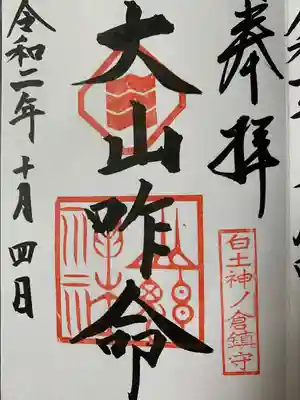 奉拝
白土神ノ倉鎮守
大山咋命
令和二年十月四日